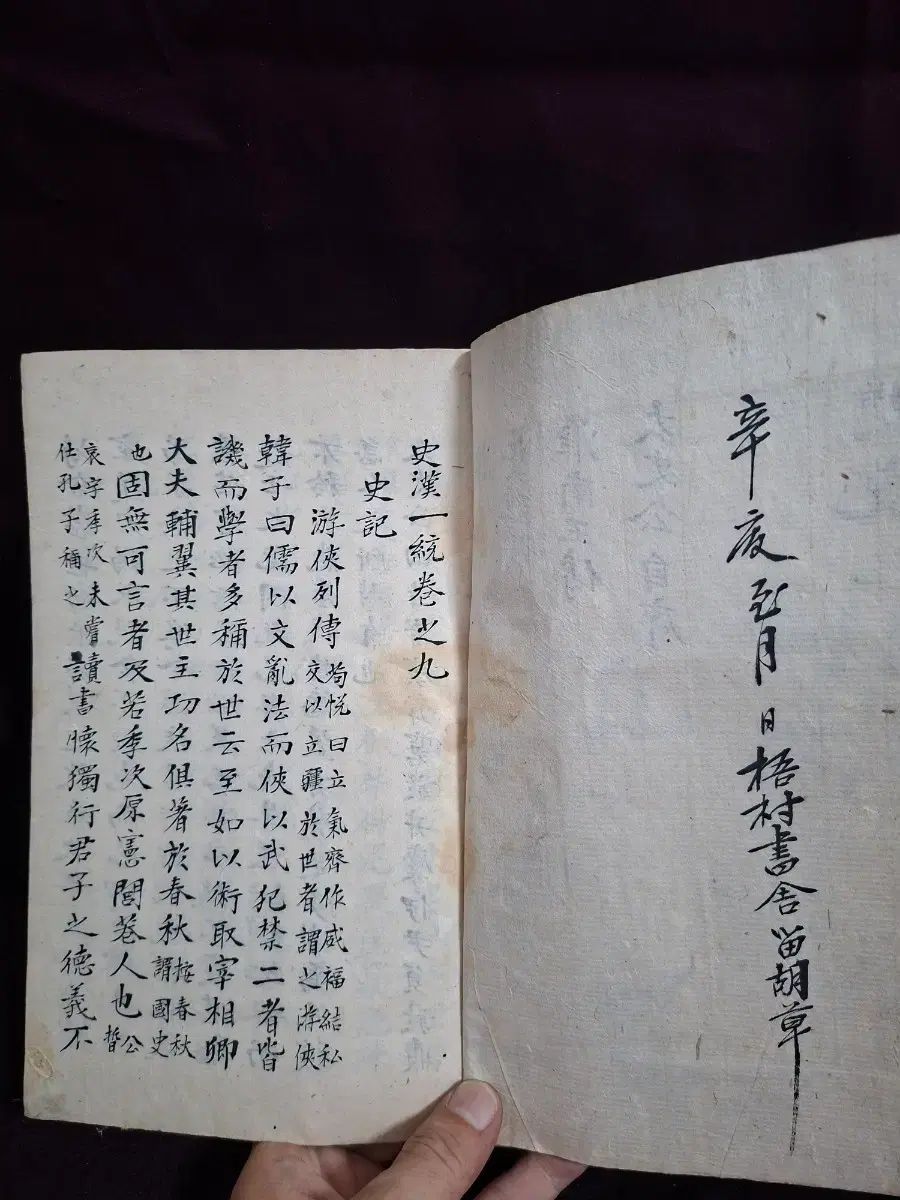 辛 至月 日梧村書舍畱胡草
史漢一統卷之九
史記
游俠列傳荀悅曰立氣齊作威福結私交以立疆於世者謂之游俠
韓子曰儒以文亂法而俠以武犯禁二者皆
譏而學者多稱於世云至如以術取宰相卿
大夫輔翼其世主功名俱著於春秋按春秋謂國史
也固無可言者及若季次原憲閭巷人也公晳
哀字季次未嘗仕孔子稱之讀書懷獨行君子之德義不